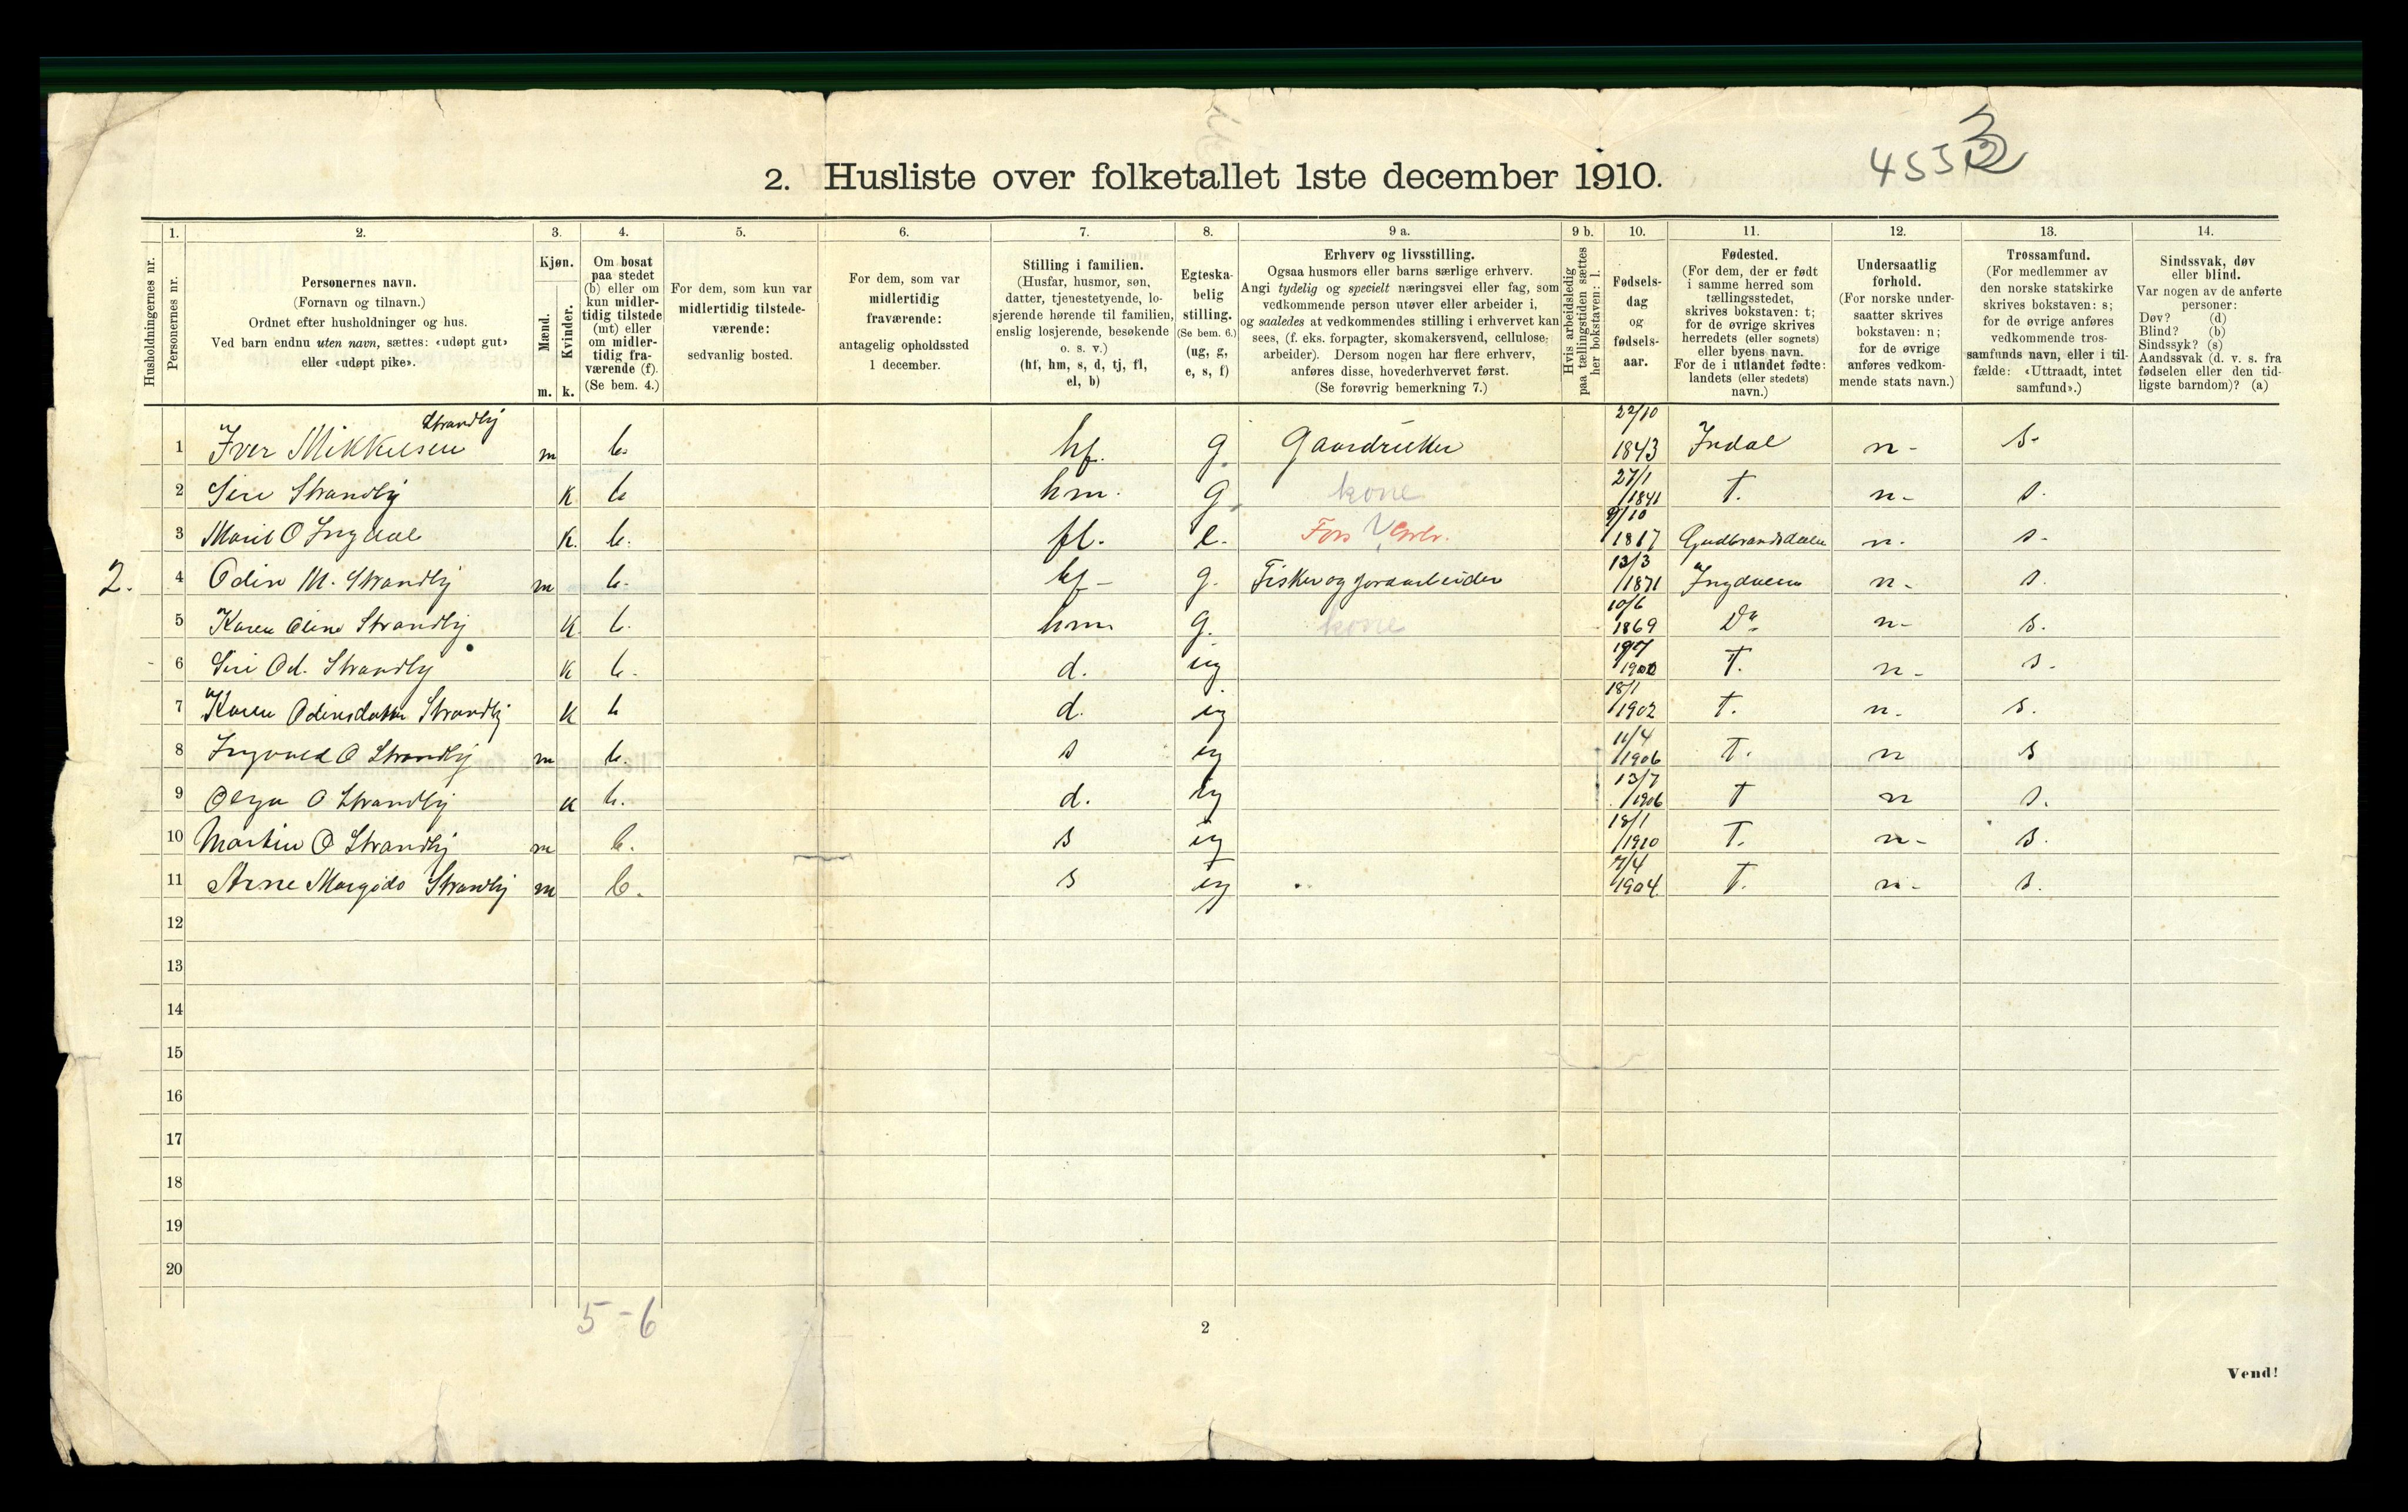 4553
2. Husliste over folketallet 1ste december 1910.
Husholdningernes nr.
1. Personernes nr.
2. Personernes navn.
(Fornavn og tilnavn.)
Ordnet efter husholdninger og hus.
Ved barn endnu uten navn, sættes: «udøpt gut»
eller «udøpt pike».
3. Kjøn.
Mænd. m.
Kvinder. k.
4. Om bosat
paa stedet
(b) eller om
kun midler-
tidig tilstede
(mt) eller
om midler-
tidig fra-
værende (f).
(Se bem. 4.)
5. For dem, som kun var
midlertidig tilstede-
værende:
sedvanlig bosted.
6. For dem, som var
midlertidig
fraværende:
antagelig opholdssted
1 december.
7. Stilling i familien.
(Husfar, husmor, søn,
datter, tjenestetyende, lo-
sjerende hørende til familien,
enslig losjerende, besøkende
o. s. v.)
(hf, hm, s, d, tj, fl,
el, b)
8. Egteska-
belig
stilling.
(Se bem. 6.)
(ug, g,
e, s, f)
9 a. Erhverv og livsstilling.
Ogsaa husmors eller barns særlige erhverv.
Angi tydelig og specielt næringsvei eller fag, som
vedkommende person utøver eller arbeider i,
og saaledes at vedkommendes stilling i erhvervet kan
sees, (f. eks. forpagter, skomakersvend, cellulose-
arbeider). Dersom nogen har flere erhverv,
anføres disse, hovederhvervet først.
(Se forøvrig bemerkning 7.)
9 b. Hvis arbeidsledig
paa tællingstiden sættes
her bokstaven: l.
10. Fødsels-
dag
og
fødsels-
aar.
11. Fødested.
(For dem, der er født
i samme herred som
tællingsstedet,
skrives bokstaven: t;
for de øvrige skrives
herredets (eller sognets)
eller byens navn.
For de i utlandet fødte:
landets (eller stedets)
navn.)
12. Undersaatlig
forhold.
(For norske under-
saatter skrives
bokstaven: n;
for de øvrige
anføres vedkom-
mende stats navn.)
13. Trossamfund.
(For medlemmer av
den norske statskirke
skrives bokstaven: s;
for de øvrige anføres
vedkommende tros-
samfunds navn, eller i til-
fælde: «Uttraadt, intet
samfund».)
14. Sindssvak, døv
eller blind.
Var nogen av de anførte
personer:
Døv? (d)
Blind? (b)
Sindssyk? (s)
Aandssvak (d. v. s. fra
fødselen eller den tid-
ligste barndom)? (a)
1 Iver Mikkelsen Strandby m b. hf. g. Gaardbruker 22/10 1843 Indal n- s-
2 Siri Strandby K b hm. g. kone 27/1 1841 T. n- s.
3 Marit O Ingdal K. b. fl. e. Fors 9/10 1817 Gudbrandsdalen n. s-
2. 4 Odin M. Strandby m b- hf- g. Fisker og jordarbeider 13/3 1871 Ingdalen n- s.
5 Karen Oline Strandby K. b. hm. g. kone 10/6 1869 Do n- s.
6 Siri Od. Strandby K b.- d. ug T. n- s.
7 Karen Odinsdatter Strandby K b d. ug 18/1 1902 T. n. s.
8 Ingvald O Strandby m b. s ug 11/4 1906 T. n s
9 Olga O Strandby K b. d. ug 13/7 1906 T n s.
10 Martin O Strandby m b. s ug 18/1 1910 T. n- s.
11 Arne Margido Strandby m b. s ug 7/4 1904. T. n- s.
12
13
14
15
16
17
18
19
20
5-6
2
Vend!